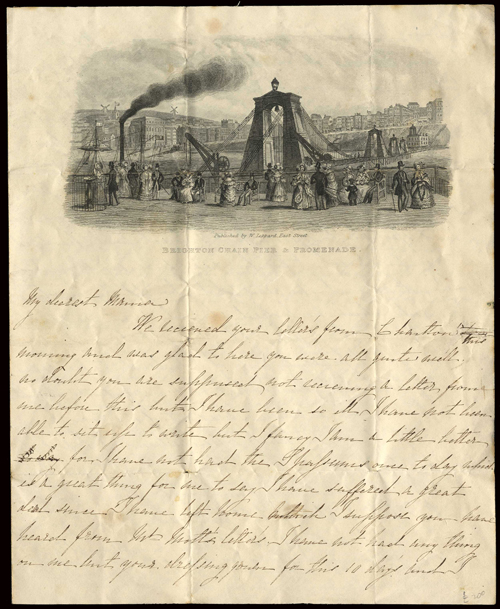 Published by W. Leppard East Street
BRIGHTON CHAIN PIER & PROMENADE.
My dearest Mamma
We recieved your letters from Charlton this
morning and was glad to here you were all quite well.
no doubt you are suppused not recieving a letter from
me before this but I have been so ill I have not been
able to set up to write but I fancy I am a little better
for I have not had the Spassums once to day which
is a great thing for me to say I have suffered a great
deal since I have left home I suppose you have
heard from Mr Motts letters. I have not had any thing
on me but your dressing gown for this 10 days and I